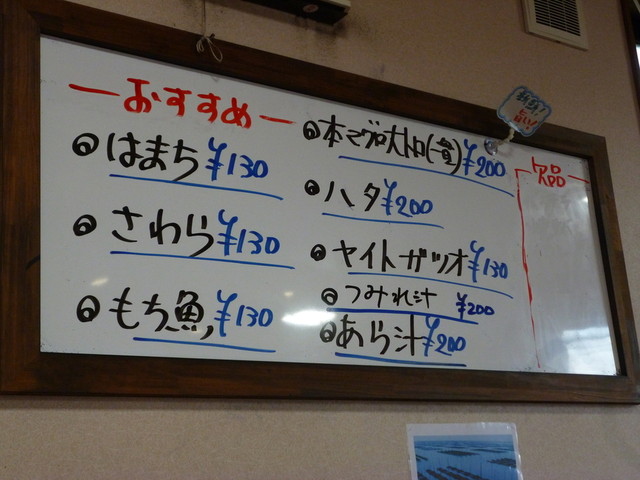 おすすめ
はまち ¥130
さわら ¥130
もち魚 ¥130
本マグロ大トロ(畜) ¥200
ハタ ¥200
ヤイトガツオ ¥130
つみれ汁 ¥200
あら汁 ¥200
欠品
新鮮!